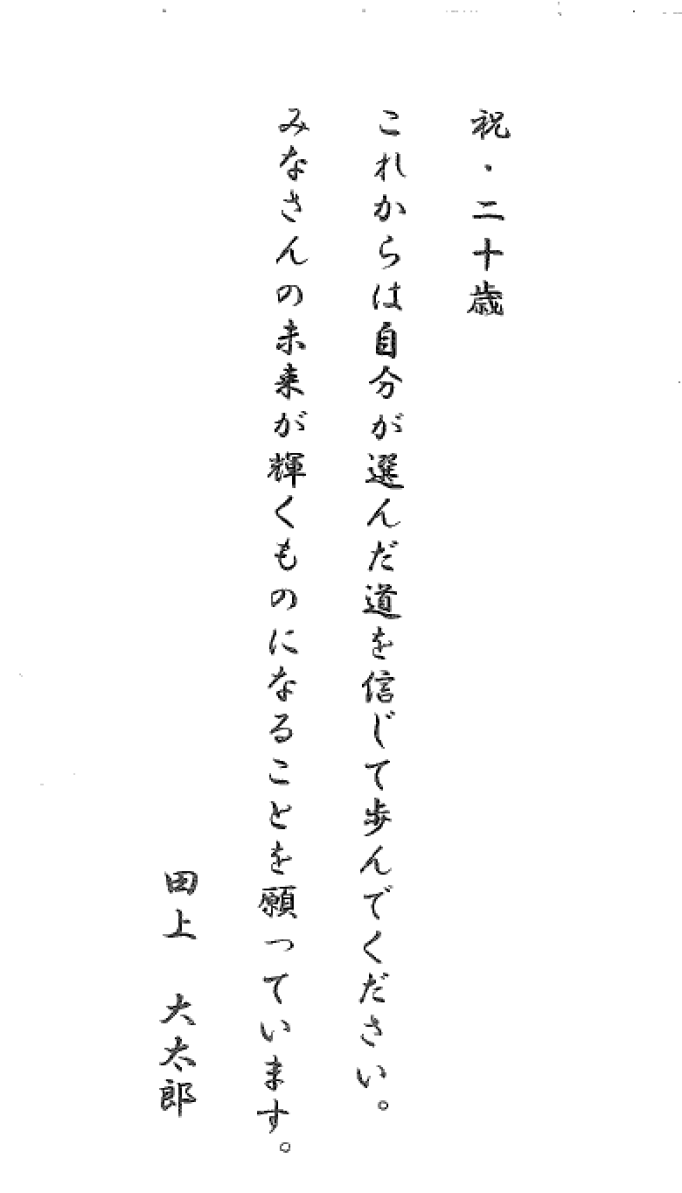 祝・二十歳
これからは自分が選んだ道を信じて歩んでください。
みなさんの未来が輝くものになることを願っています。
田上　大太郎